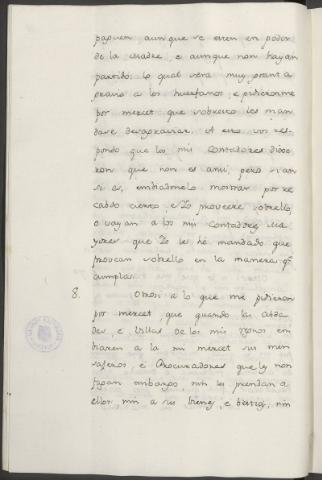 paguen aunque se esten en poder
de la madre, e aunque non hayan
partido. lo qual sera muy grant a
gravio a los huerfanos, e pidieronme
por mercet que sobresto les man
dase desagraviar. A esto vos res
pondo que los mis Contadores disce
ron que non es ami, pero si an
si es, embiadmelo mostrar por re
cabdo cierto, e Yo proveere sobrello,
o vayan a los mis contadores ma
yores que Yo les he mandado que
provean sobrello en la manera q.e
cumpla.
8. Otrosi a lo que me pidieron
por mercet, que quando las cibda
des, e Villas de los mis regnos em
biaren a la mi mercet sus men
sageros, e Procuradores que les non
fagan embargo, nin les prendan a
ellos nin a sus bienes, e bestias, nin